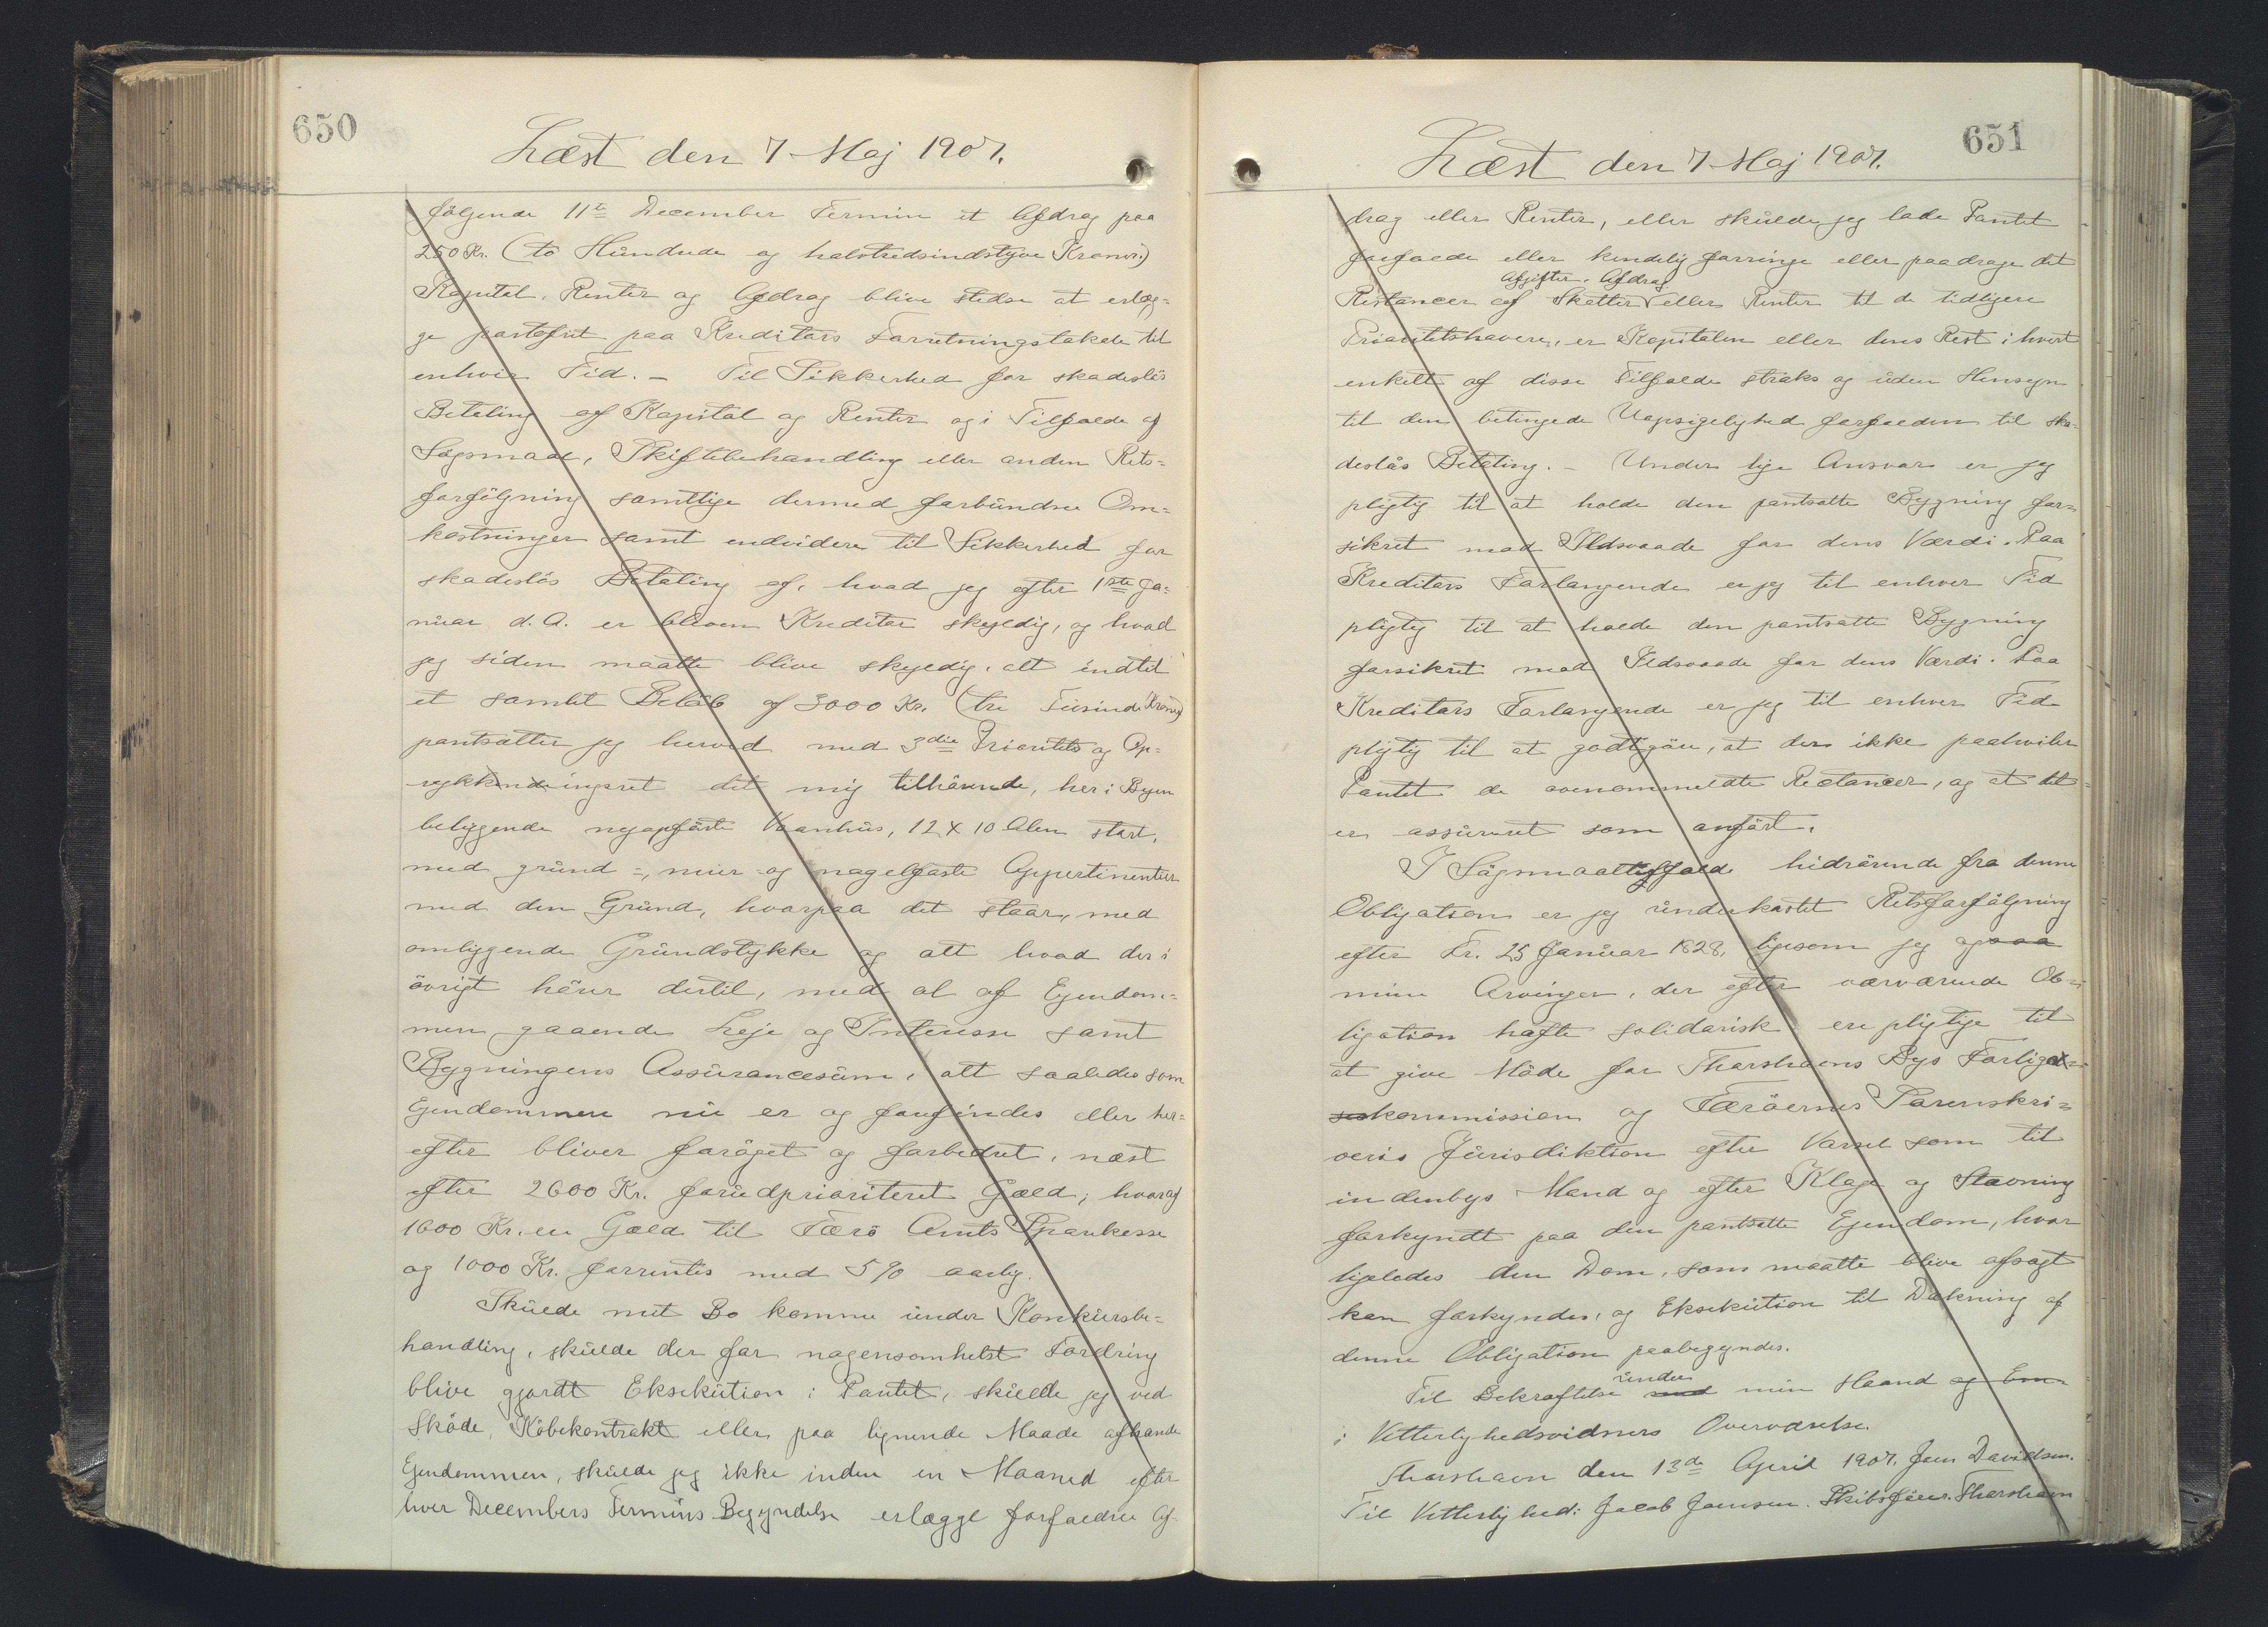 650
Læst den 7 Maj 1907.
følgende 11te December Termin et Afdrag paa
250 Kr. (to Hundrede og halvtredsindstyve Kroner.)
Kapital, Renter og Afdrag blive stedse at erlæg-
ge portofrit paa Kreditors Forretningslokale til
enhver Tid. – Til Sikkerhed for skadesløs
Betaling af Kapital og Renter og i Tilfælde af
Søgsmaal, Skiftebehandling eller anden Rets-
forfølgning samtlige dermed forbundne Om-
kostninger samt endvidere til Sikkerhed for
skadesløs Betaling af, hvad jeg efter 1ste Ja-
nuar d. A. er bleven Kreditor skyldig, og hvad
jeg siden maatte blive skyldig, alt indtil
et samlet Beløb af 3000 Kr. (tre Tusinde Kroner)
pantsætter jeg herved med 3die Prioritets og Op-
rykkendingsret det mig tilhørende, her i Byen
beliggende nyopførte Vaanhus, 12 x 10 Alen stort,
med grund-, mur- og nagelfaste Appertinentier
med den Grund, hvorpaa det staar, med
omliggende Grundstykke og alt hvad der i
øvrigt hører dertil, med al af Ejendom-
men gaaende Leje og Interesse samt
Bygningens Assurancesum, alt saaledes som
Ejendommen nu er og forefindes eller her-
efter bliver forøget og forbedret, næst
efter 2600 Kr. forudprioriteret Gæld, hvoraf
1600 Kr. er Gæld til Færø Amts Sparekasse
og 1000 Kr. forrentes med 5 % aarlig.
Skulde mit Bo komme under Konkursbe-
handling, skulde der for nogensomhelst Fordring
blive gjordt Eksekution i Pantet, skulde jeg ved
Skøde, Købekontrakt eller paa lignende Maade afhænde
Ejendommen, skulde jeg ikke inden en Maaned efter
hver Decembers Termins Begyndelse erlægge forfaldne Af-
651
Læst den 7 Maj 1907.
drag eller Renter, eller skulde jeg lade Pantet
forfalde eller kendelig forringe eller paadrage det
Afgifter, Afdrag
Restancer af Skatter eller Renter til de tidligere
Prioritetshavere, er Kapitalen eller dens Rest i hvert
enkelt af disse Tilfælde straks og uden Hensyn
til den betingede Uopsigelighed forfalden til ska-
desløs Betaling. – Under lige Ansvar er jeg
pligtig til at holde den pantsatte Bygning for-
sikret mod Ildsvaade for dens Værdi. Paa
Kreditors Forlangende er jeg til enhver Tid
pligtig til at holde den pantsatte Bygning
forsikret mod Ildsvaade for dens Værdi. Paa
Kreditors Forlangende er jeg til enhver Tid
pligtig til at godtgøre, at der ikke paahviler
Pantet de ovenommeldte Restancer, og at det
er assureret som anført.
I Søgsmaalstilfælde hidrørende fra denne
Obligation er jeg underkastet Retsforfølgning
efter Fr. 25 Januar 1828, ligesom jeg og
mine Arvinger, der efter nærværende Ob-
ligation hæfte solidarisk ere pligtige til
at give Møde for Thorshavns Bys Forliges-
kommission og Færøernes Sorenskri-
veris Jurisdiktion efter Varsel som til
indenbys Mand og efter Klage og Stævning
forkyndt paa den pantsatte Ejendom, hvor
ligeledes den Dom, som maatte blive afsagt
kan forkyndes, og Eksekution til Dækning af
denne Obligation paabegyndes.
under
Til Bekræftelse med min Haand og Em
i Vitterlighedsvidners Overværelse.
Thorshavn den 13de April 1907. Jens Davidsen.
Til Vitterlighed: Jacob Joensen. Skibsfører. Thorshavn